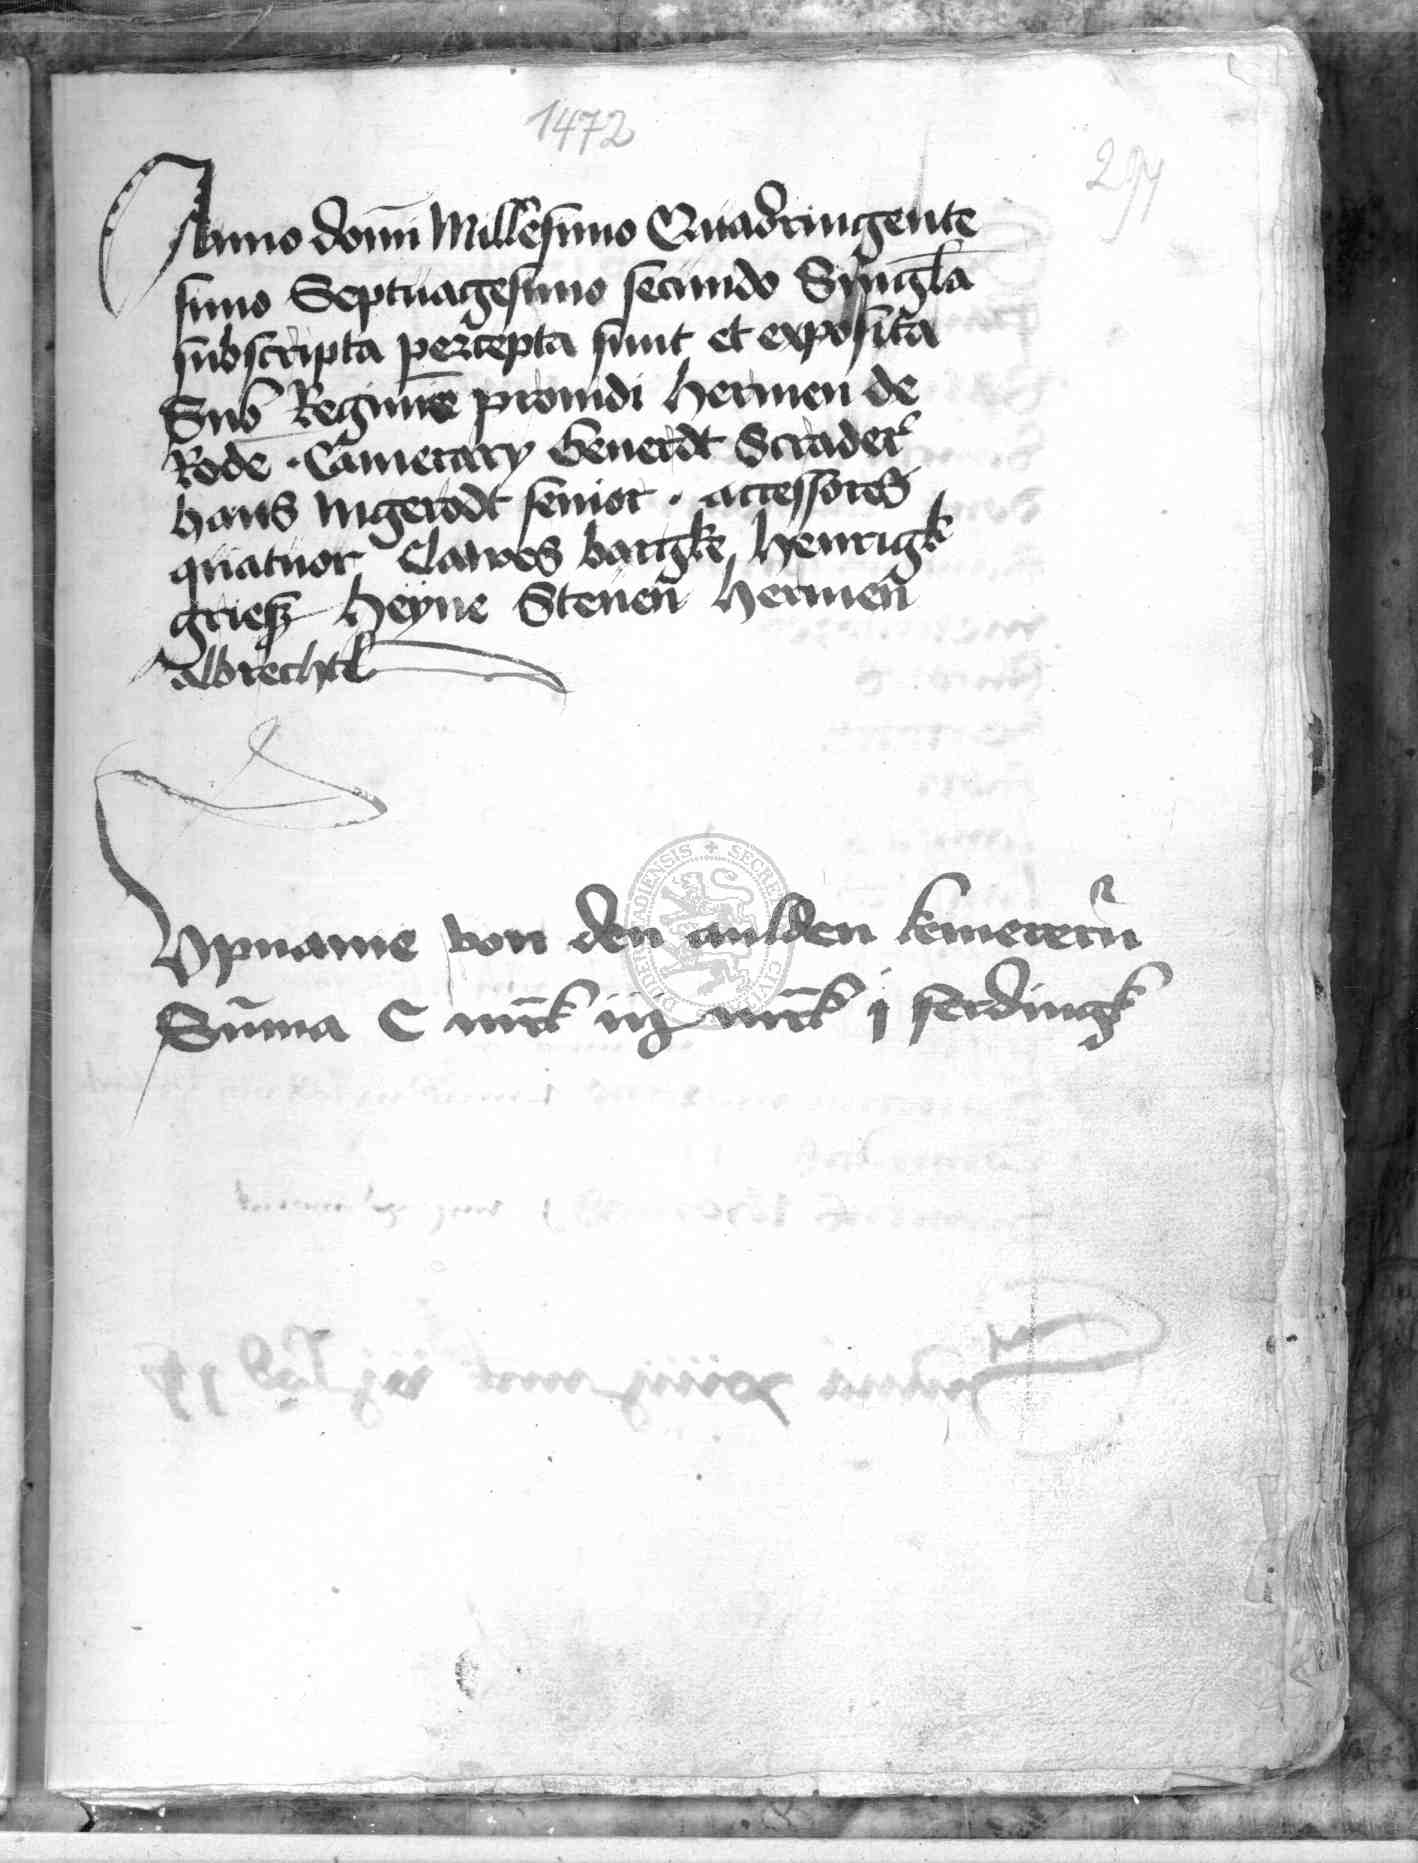 1472
294
Anno dom̄ Millesimo Quadringente
simo Septuagesimo secundo Singl̄a
subscripta percepta sunt et exposita
Sub Regimīe prouidi hermen de
Rode . Camerary Benerdt Scrader
hans Ingerodt senior . accessores
quatuor Clawes bargke henrigk
griesz heyne Steuen̄ hermen̄
albrechtē
Vpname von den aulden kemerern̄
Sum̄a C mr̄k iij mr̄k j ferdingk
DUDERSTADIENSIS SECRE CIVI